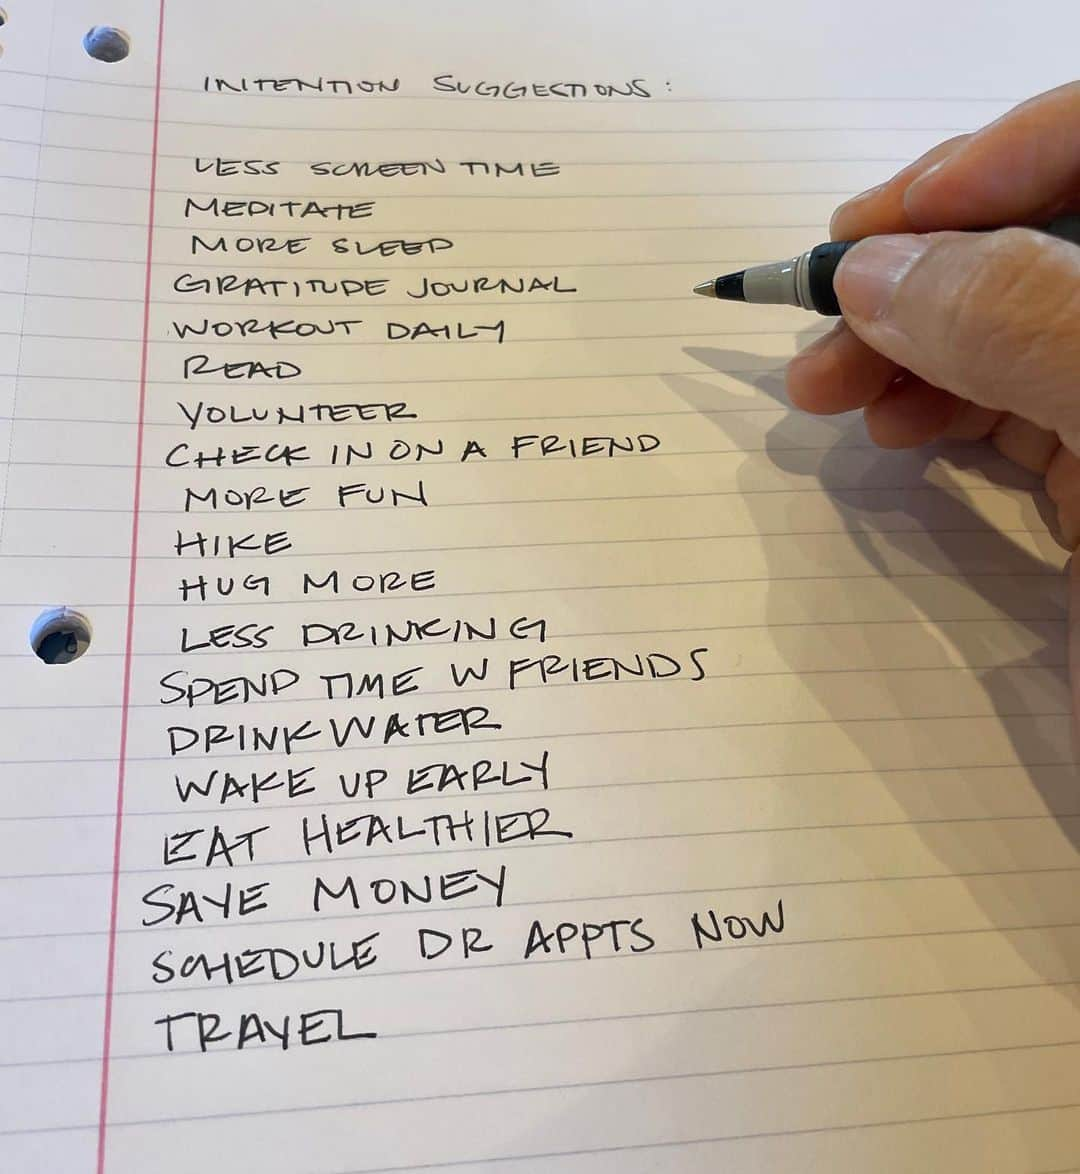 INTENTION SUGGESTIONS:
LESS SCREEN TIME
MEDITATE
MORE SLEEP
GRATITUDE JOURNAL
WORKOUT DAILY
READ
VOLUNTEER
CHECK IN ON A FRIEND
MORE FUN
HIKE
HUG MORE
LESS DRINKING
SPEND TIME W FRIENDS
DRINK WATER
WAKE UP EARLY
EAT HEALTHIER
SAVE MONEY
SCHEDULE DR APPTS NOW
TRAVEL